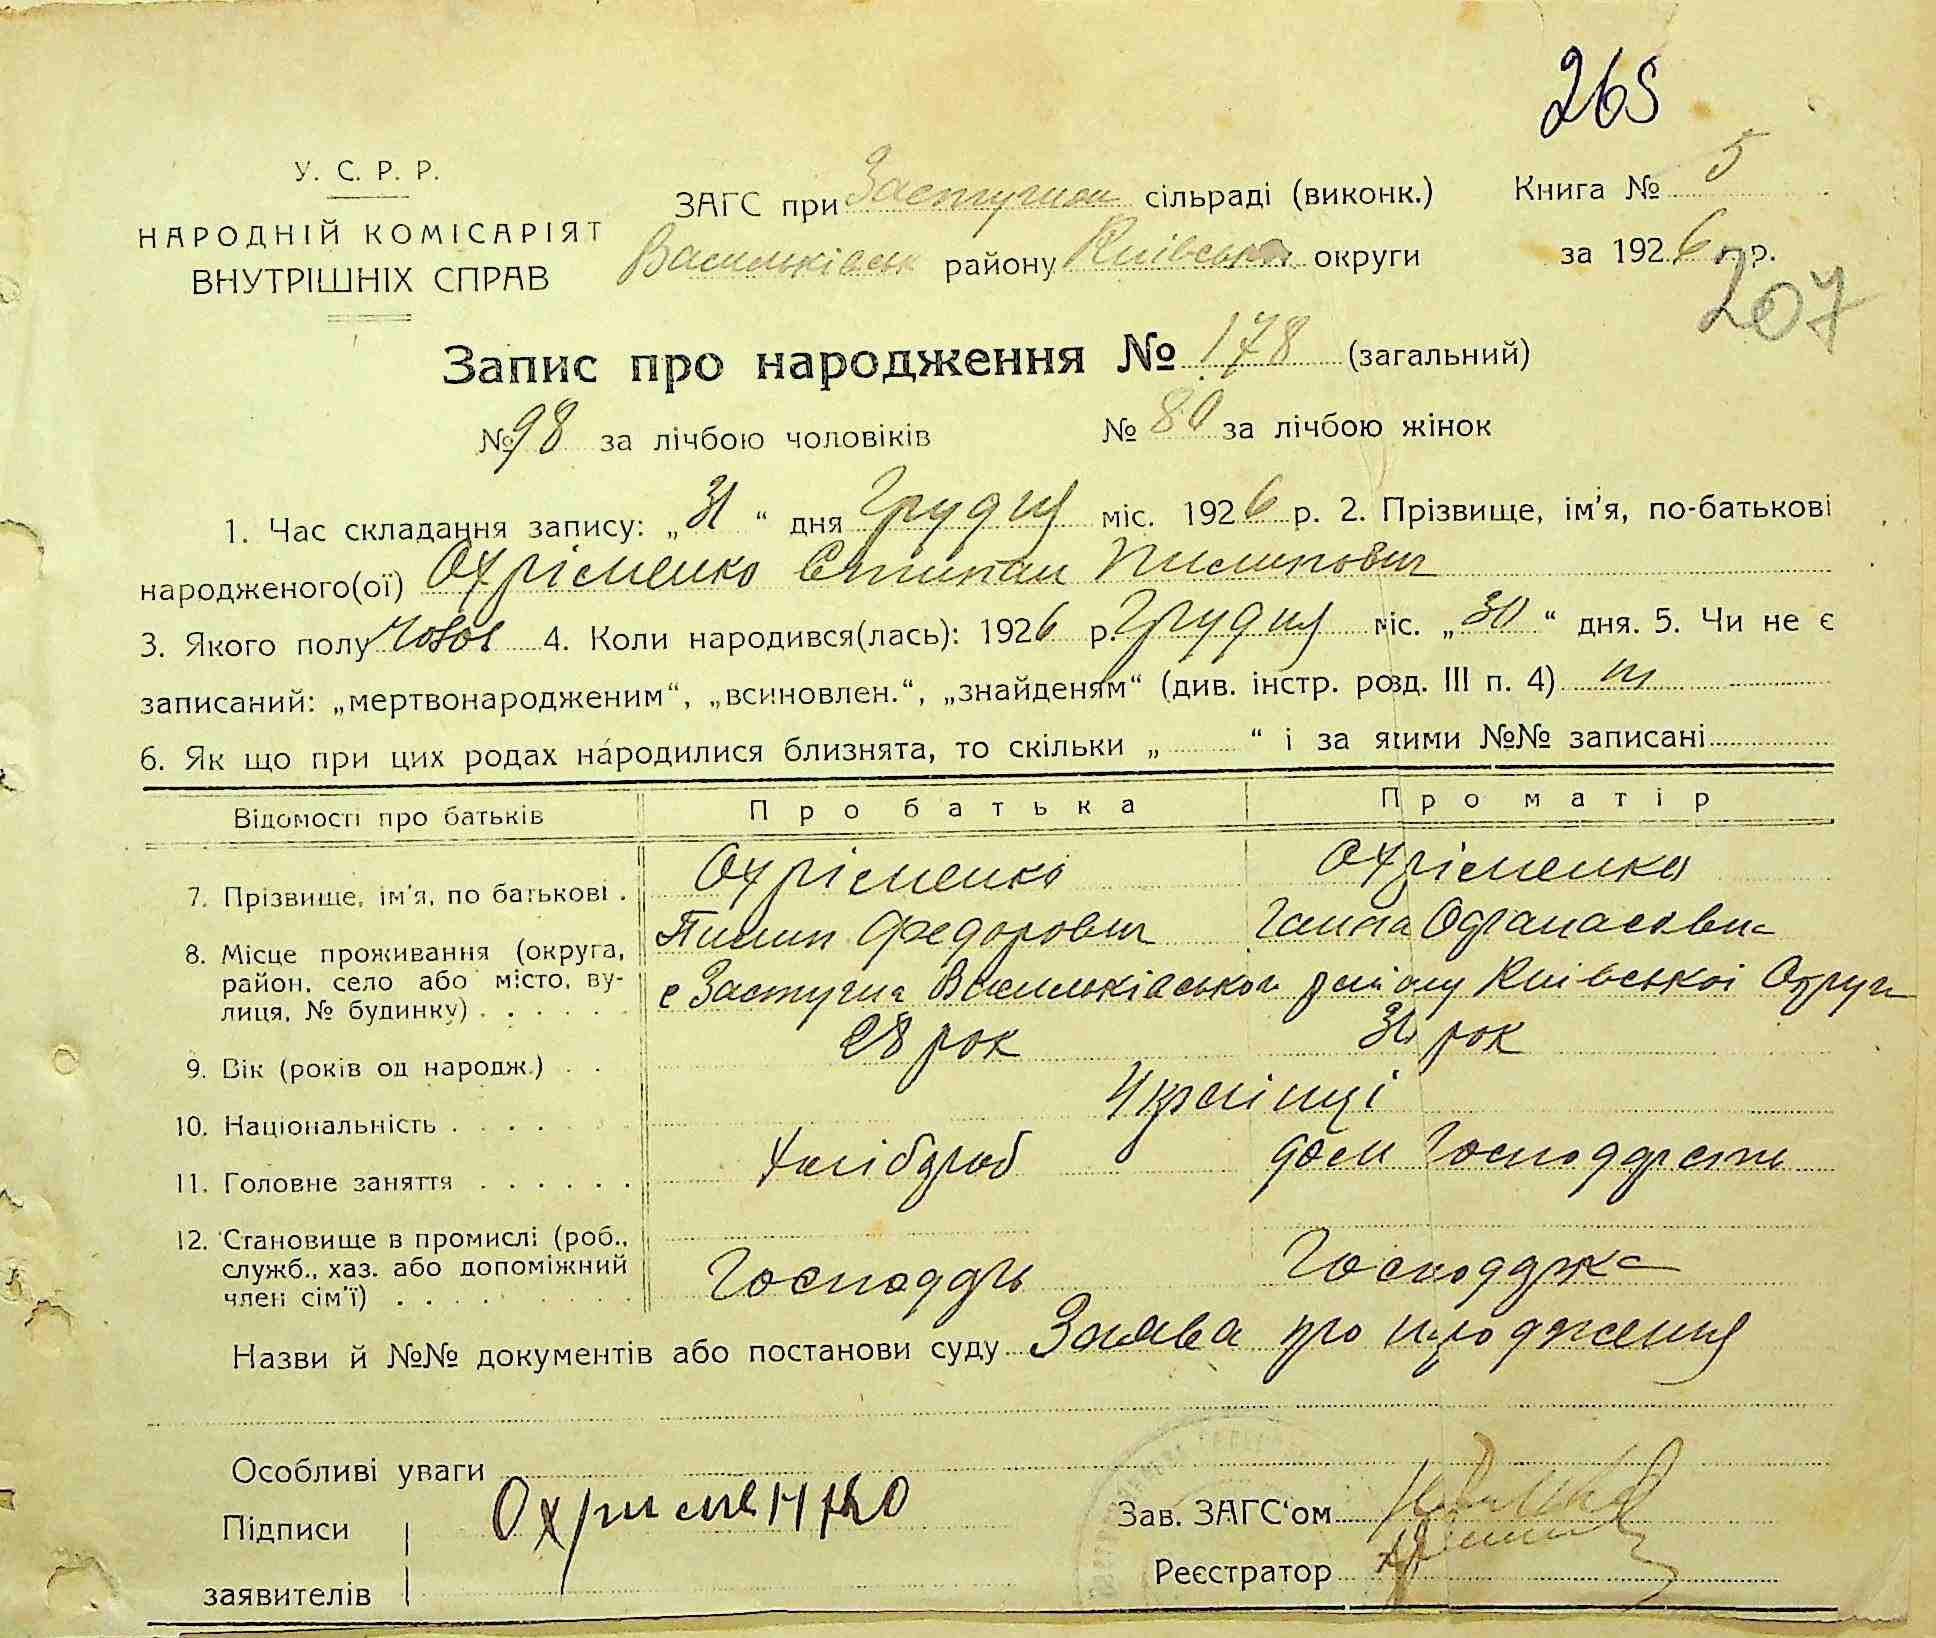 265
У. С. Р. Р.
НАРОДНІЙ КОМІСАРІЯТ
ВНУТРІШНІХ СПРАВ
ЗАГС при Застугнян сільраді (виконк.) Книга № 5
Васильківськ району Київськ округи за 1926 р.
207
Запис про народження № 178 (загальний)
№ 98 за лічбою чоловіків № 80 за лічбою жінок
1. Час складання запису: „31“ дня Грудня міс. 1926 р. 2. Прізвище, ім'я, по-батькові
народженого(ої) Охріменко Степан Пилипович
3. Якого полу чолов 4. Коли народився(лась): 1926 р. Грудня міс. „30“ дня. 5. Чи не є
записаний: „мертвонародженим“, „всиновлен.“, „знайденям“ (див. інстр. розд. III п. 4) ні
6. Як що при цих родах народилися близнята, то скільки „ “ і за якими №№ записані
Відомості про батьків Про батька Про матір
7. Прізвище, ім'я, по батькові . Охріменко Охріменко
Пилип Федорович Ганна
8. Місце проживання (округа,
район, село або місто, ву-
лиця, № будинку) . . . . . . с Застугна Васильківського району Київської Округи
9. Вік (років од народж.) . . 28 рок рок
10. Національність . . . . . . Українці
11. Головне заняття . . . . . . Хлібороб дом Господарств
12. Становище в промислі (роб.,
служб., хаз. або допоміжний
член сім'ї) . . . . . . . . Господарь Господарка
Назви й №№ документів або постанови суду Заява про народження
Особливі уваги
Підписи Охрименко Зав. ЗАГС'ом
заявителів Реєстратор